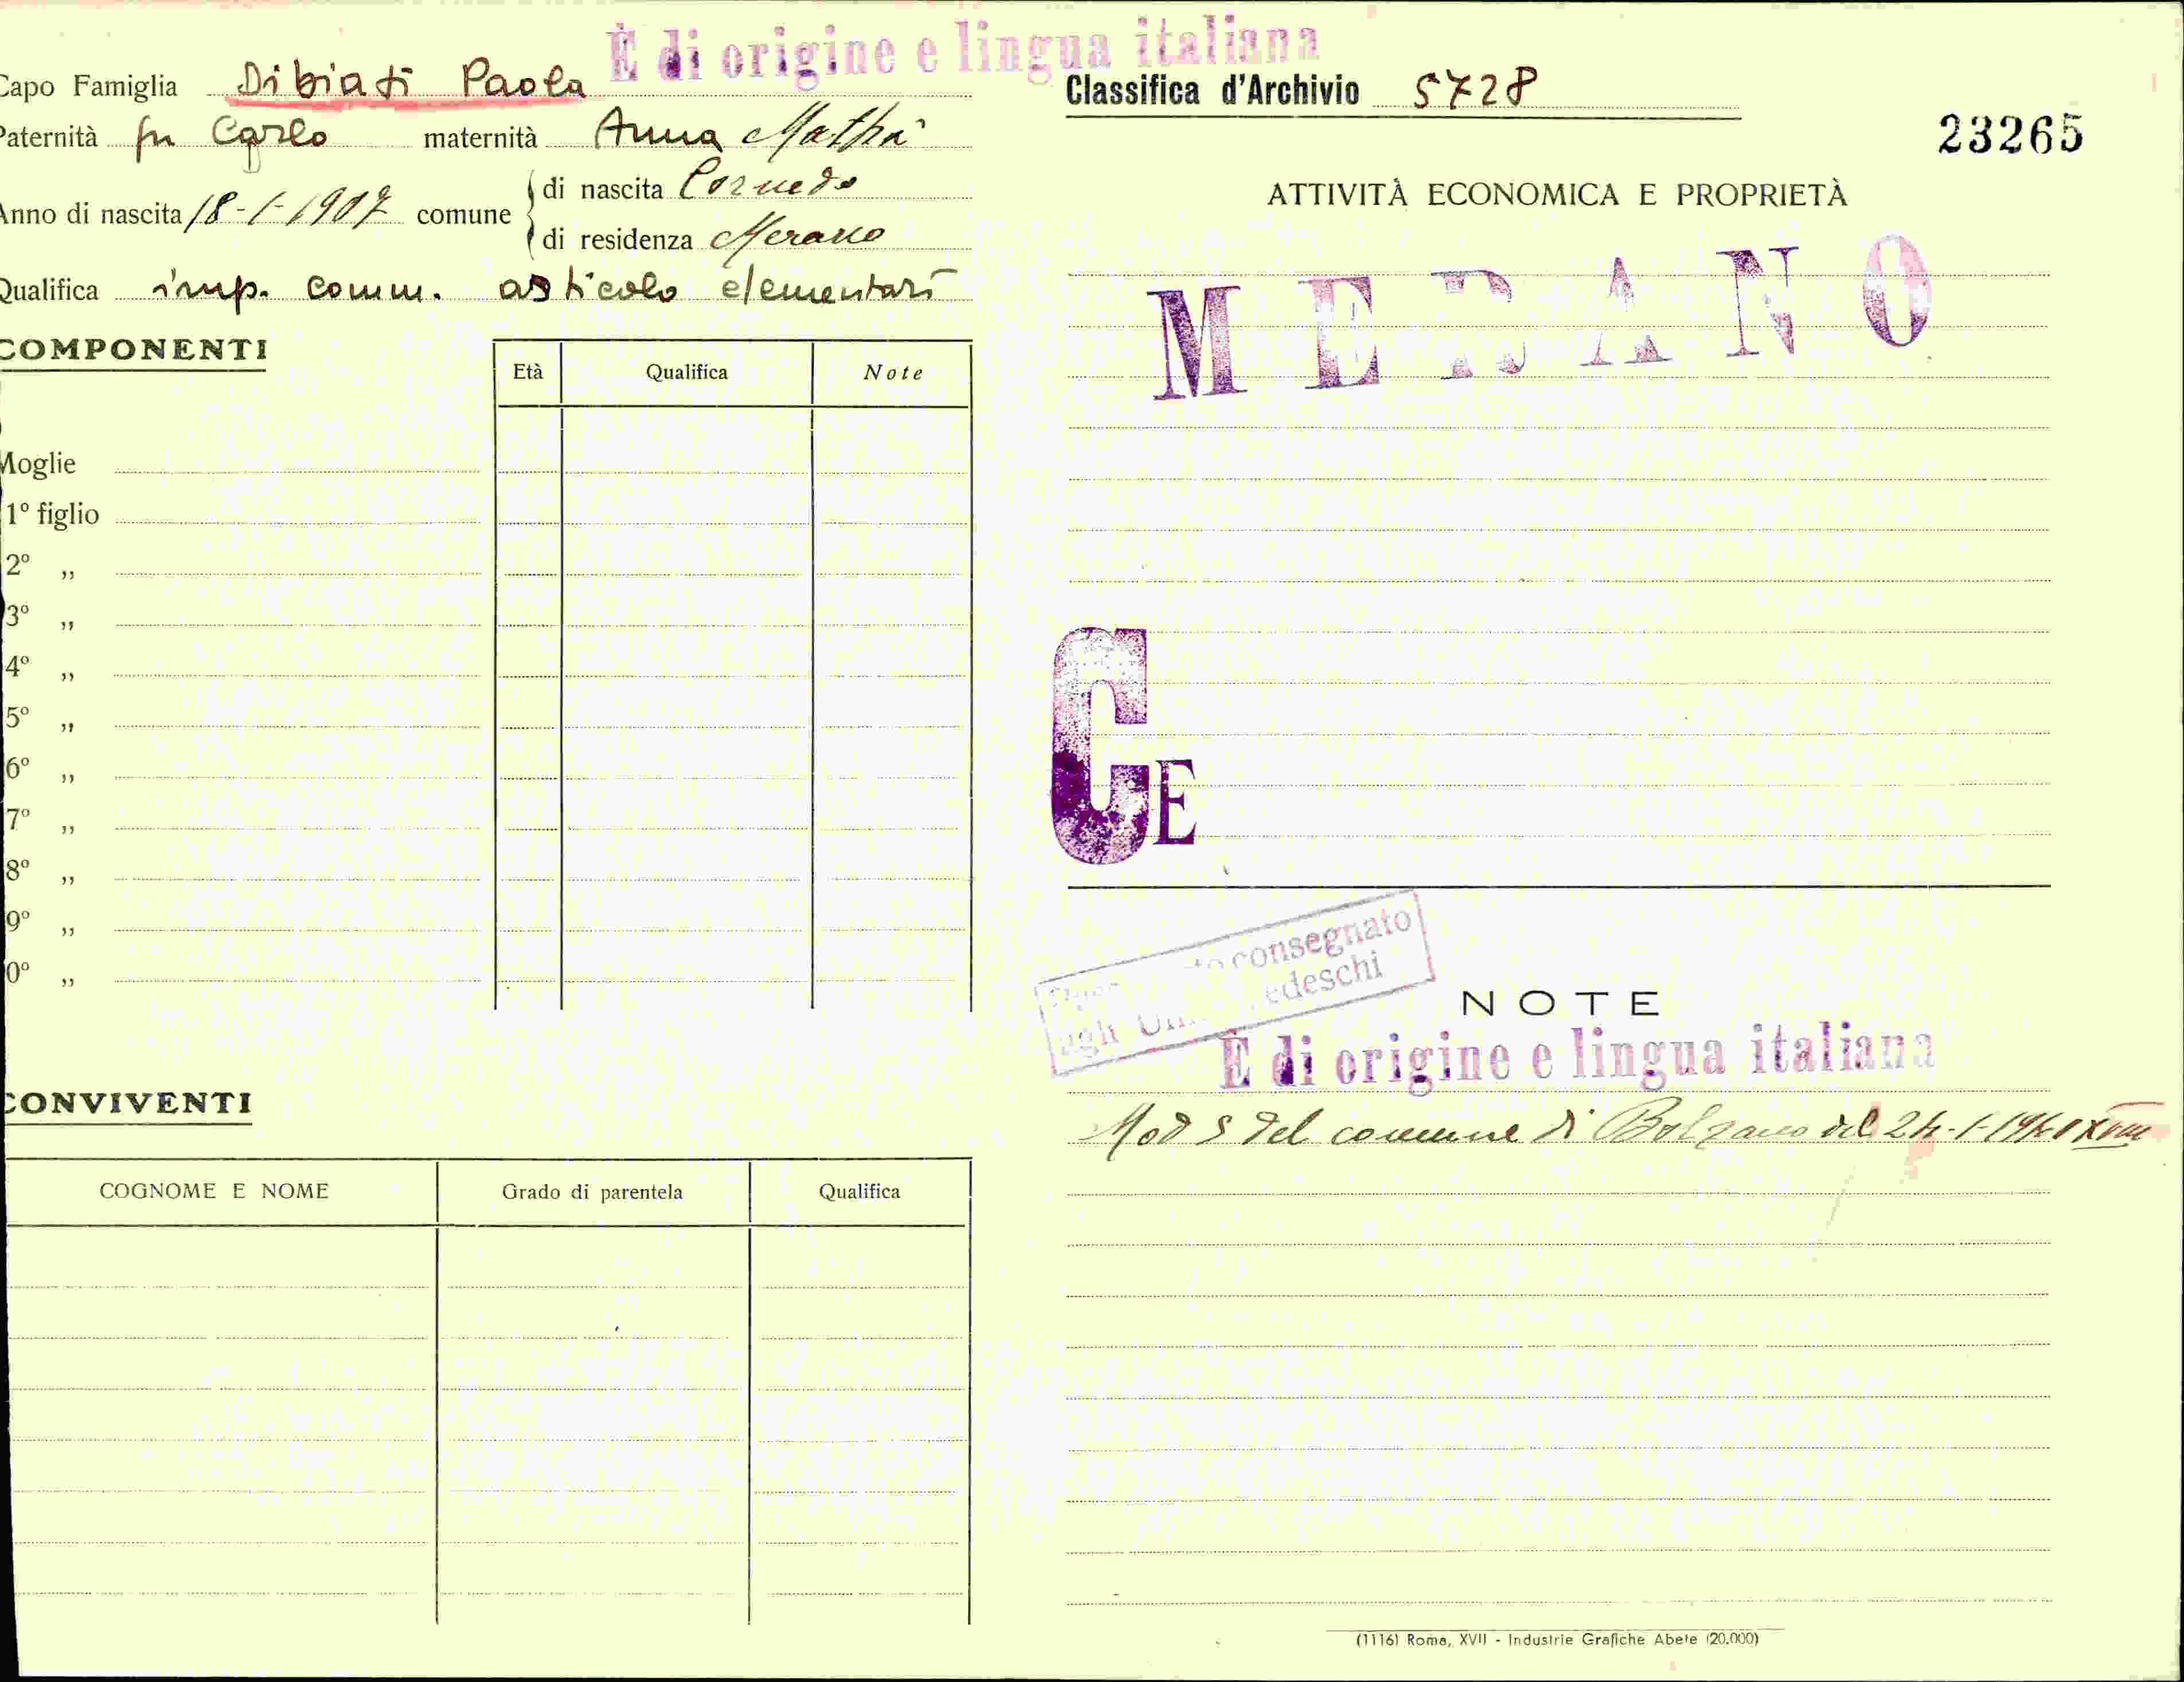 È di origine e lingua italiana
Capo Famiglia Dibiasi Paola
Paternità fu Carlo maternità Anna Mathà
Anno di nascita 18-1-1907 comune
di nascita Cornedo
di residenza Merano
Qualifica imp. comm. articolo elementari
COMPONENTI
Età Qualifica Note
Moglie
1º figlio
2º „
3º „
4º „
5º „
6º „
7º „
8º „
9º „
0º „
CONVIVENTI
COGNOME E NOME Grado di parentela Qualifica
Classifica d'Archivio 5728
23265
ATTIVITÀ ECONOMICA E PROPRIETÀ
MERANO
CE
consegnato
agli edeschi
NOTE
È di origine e lingua italiana
Mod S del comune di Bolzano del 24-1-1940 XVIII
(1116) Roma, XVII - Industrie Grafiche Abete (20.000)